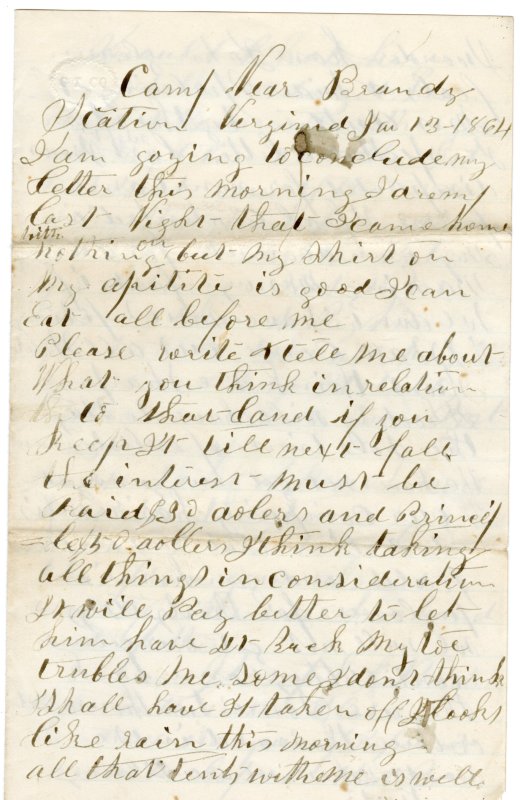 Camp Near Brandy
Station Vergind Jan 13-1864
I am goying to conclude my
letter this morning I dremp
last Night that I came home
with
nothing on but my shirt on
My apitite is good I can
Eat all before me
Please write & tell me about
What you think in relation
to that land if you
Keep It till next fall
the interest must be
paid $30 aolers and Princip
=le 50 aollers I think taking
all things in consideration
It will Pay better to let
him have it Back My toe
trubles me some I dont think
I shall have It taken off It looks
like rain this morning
all that tents with me is well